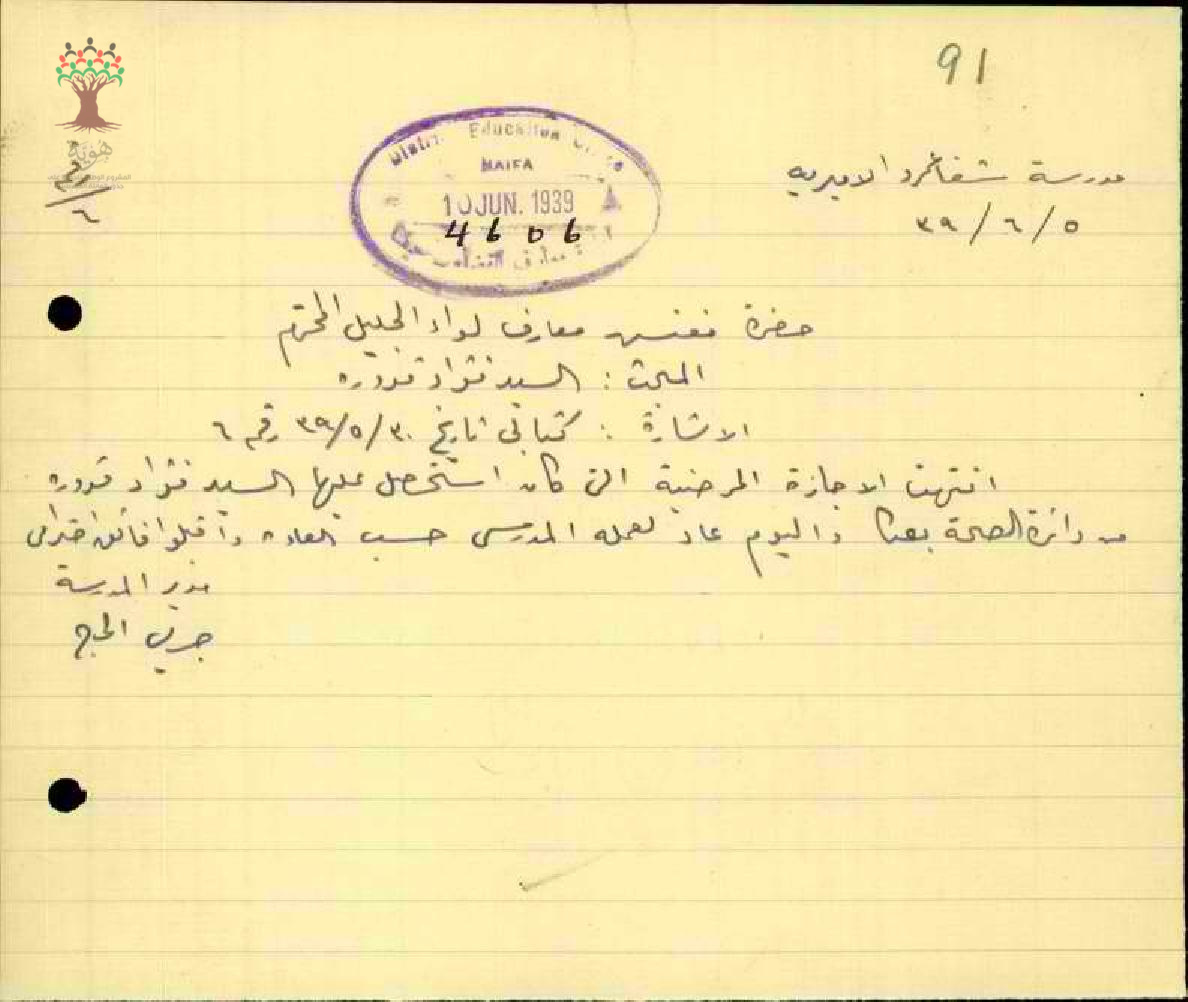 91
هوية
رقم
٦
District Education Office
HAIFA
10 JUN. 1939
4606
مدرسة شفاعمرو الاميريه
٣٩/٦/٥
حضرة مفتش معارف لواء الجليل المحترم
المبحث : السيد فؤاد قدوره
الاشارة : كتابي تاريخ ٣٩/٥/٣٠ رقم ٦
انتهت الاجازة المرضية التي كان استحصل عليها السيد فؤاد قدوره
من دائرة الصحة بعكا واليوم عاد لعمله المدرسي حسب العاده واقبلوا فائق احترامي
مدير المدرسة